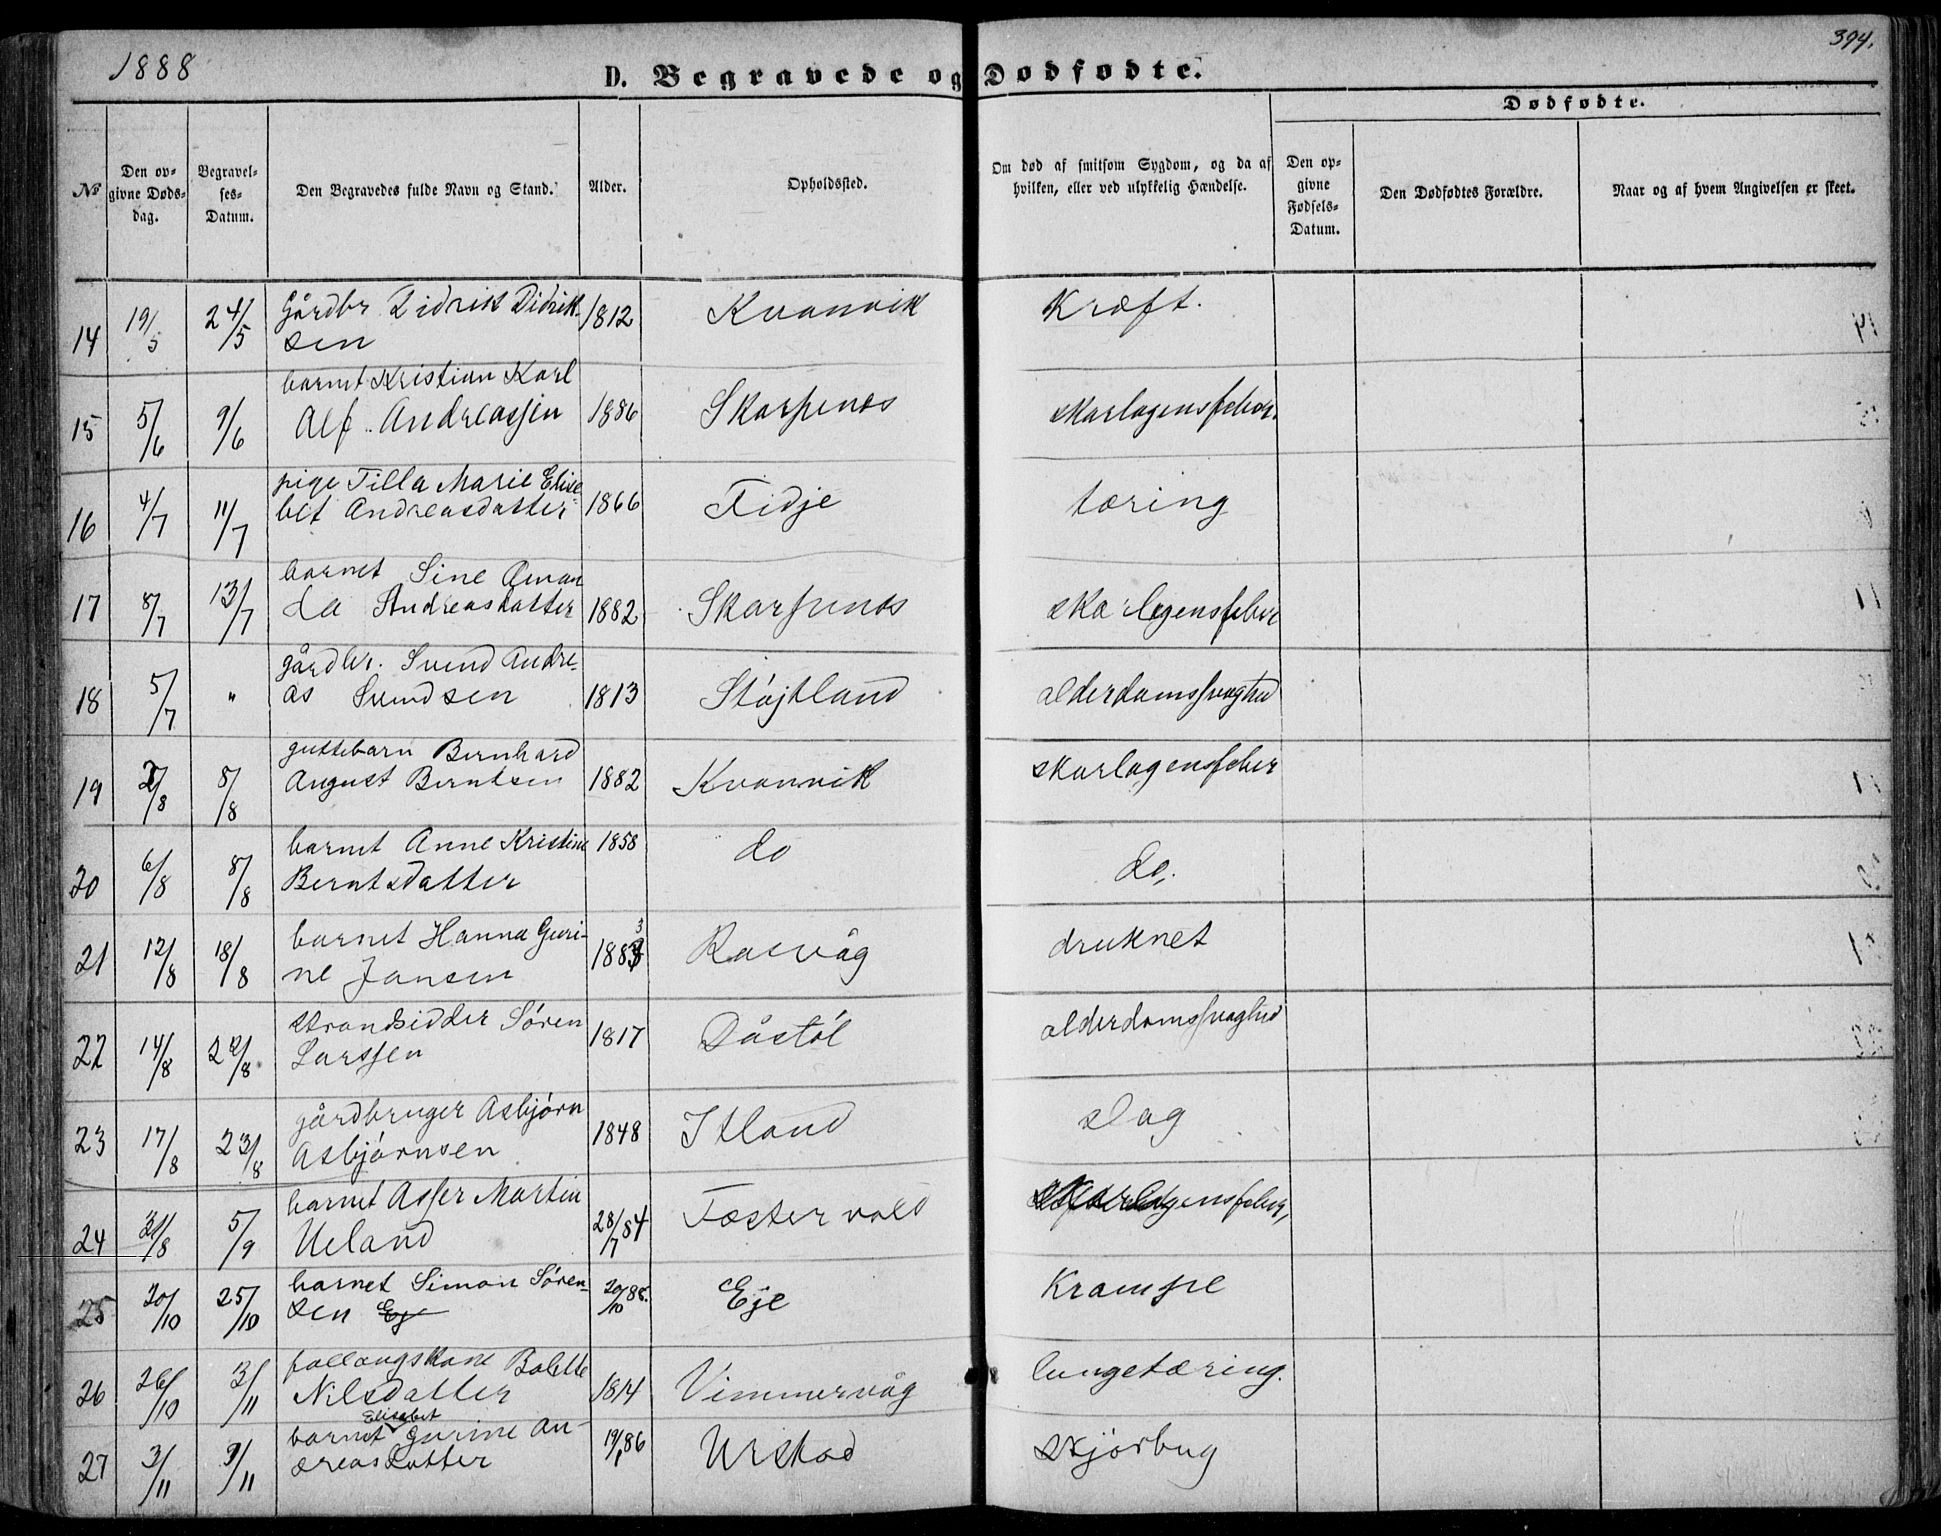 1888
394.
D. Begravede og Dødfødte.
Dødfødte.
No
Den opgivne Dødsdag.
Begravelses-Datum.
Den Begravedes fulde Navn og Stand.
Alder.
Opholdssted.
Om død af smitsom Sygdom, og da af hvilken, eller ved ulykkelig Hændelse.
Den opgivne Fødsels-Datum.
Den Dødfødtes Forældre.
Naar og af hvem Angivelsen er skeet.
14 19/5 24/5 Gårdbr Didrik Didriksen 1812 Kvanvik Kræft.
15 5/6 9/6 barnet Kristian Karl Alf Andreassen 1886 Skarpenes skarlagensfeber.
16 4/7 11/7 pige Tilla Marie Elisebet Andreasdatter 1866 Fidje tæring
17 8/7 13/7 barnet Sine Amanda Andreasdatter 1882 Skarpenes skarlagensfeber
18 5/7 " gårdbr. Svend Andreas Svendsen 1813 Støjtland alderdomssvaghed
19 /8 8/8 guttebarn Bernhard August Berntsen 1882 Kvanvik skarlagensfeber
20 6/8 8/8 barnet Anne Kristine Berntsdatter 1858 do do.
21 12/8 18/8 barnet Hanna Gurine Jansen 1883 Rasvåg druknet
22 14/8 22/8 strandsidder Søren Larssen 1817 Dåstøl alderdomssvaghed
23 17/8 23/8 gårdbruger Asbjørn Asbjørnsen 1848 Itland slag
24 31/8 5/9 barnet Asser Martin Ueland 28/7 84 Fæstervold skarlagensfeber,
25 20/10 25/10 barnet Simon Sørensen Eje 20/10 88. Eje Krampe
26 26/10 3/11 follaugskone Bolette Nilsdatter 1814 Vimmervåg lungetæring.
27 3/11 9/11 barnet Elisabet Gurine Andreasdatter 19/1 86 Urstad skjørbug